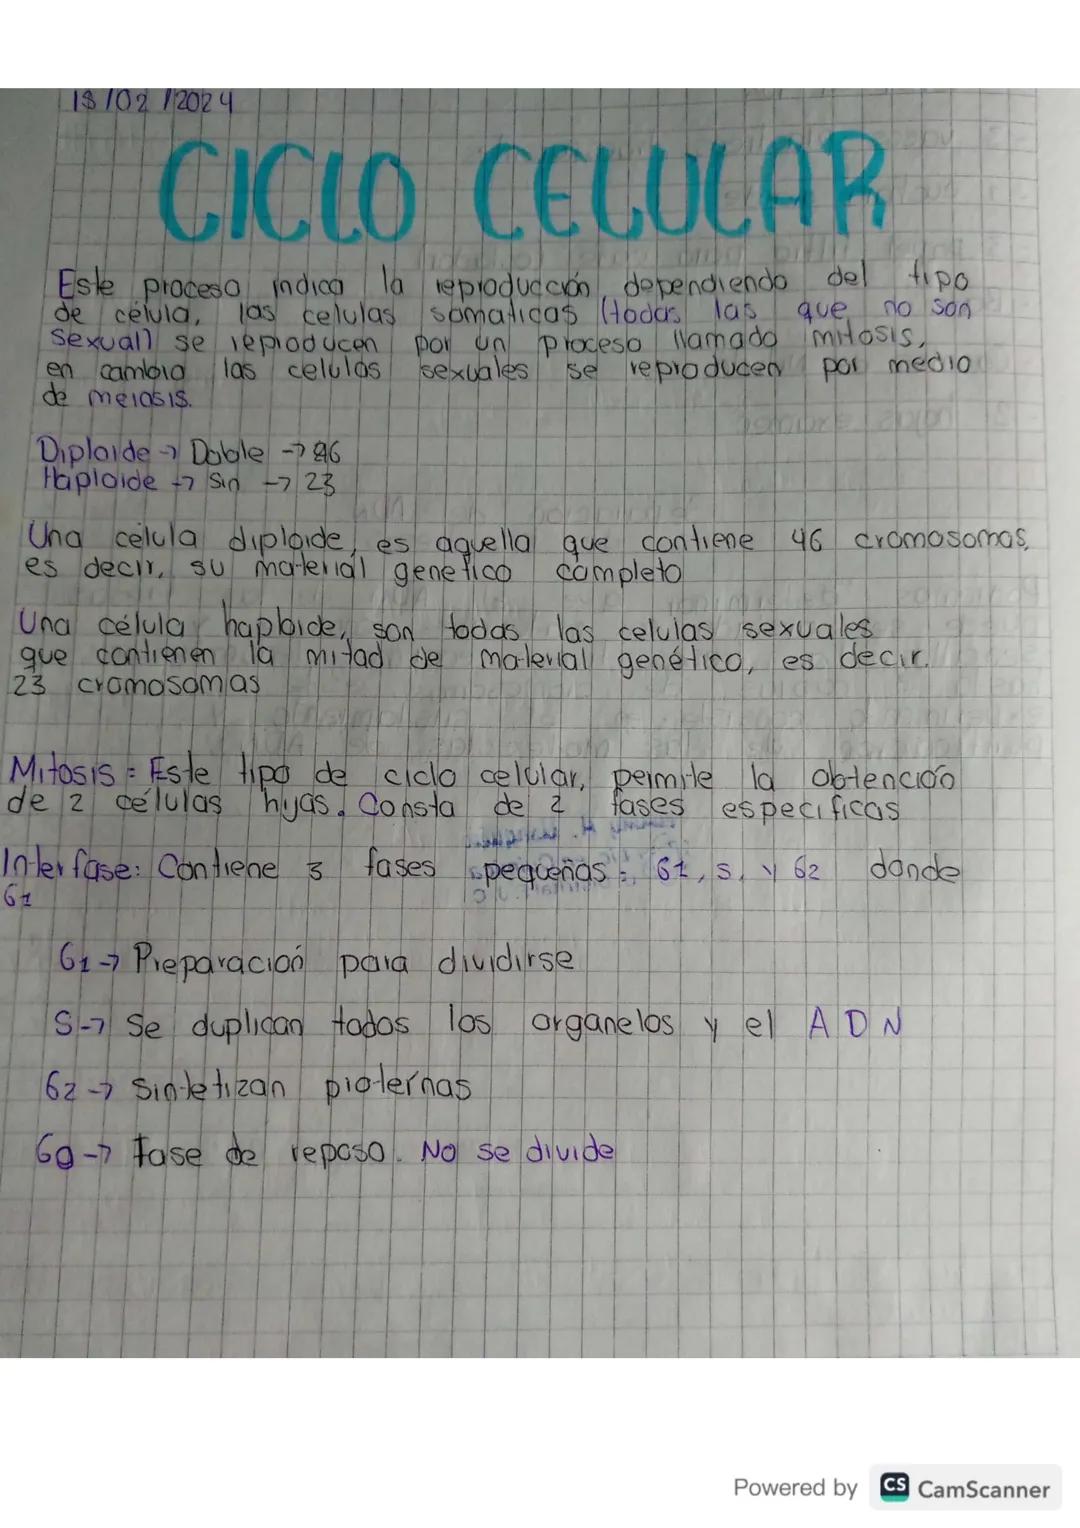 18/02/2024
CICLO CELULAR
Este proceso indica la reproducción dependiendo del tipo
de célula, las celulas somaticas (todas las que no son
sexual) se reproducen por un proceso llamado mitosis,
en cambio las celulas sexuales se reproducen por medio
de meiosis.
Diploide → Doble → 46
Haploide → Sin → 23
Una célula diploide, es aquella que contiene 46 cromosomas,
es decir, su material genetico completo
Una célula haploide, son todas las celulas sexuales
que contienen la mitad de material genético, es decir.
23 cromosomas
Mitosis = Este tipo de ciclo celular, permite la obtención
de 2 células hijas. Consta de 2 fases especificas
Interfase: Contiene 3 fases pequeñas: G1, S, y G2 donde
G1
G1 → Preparación para dividirse
S → Se duplican todos los organelos y el ADN
G2 → Sintetizan proteinas
G0 → Fase de reposo. No se divide
Powered by CS CamScanner